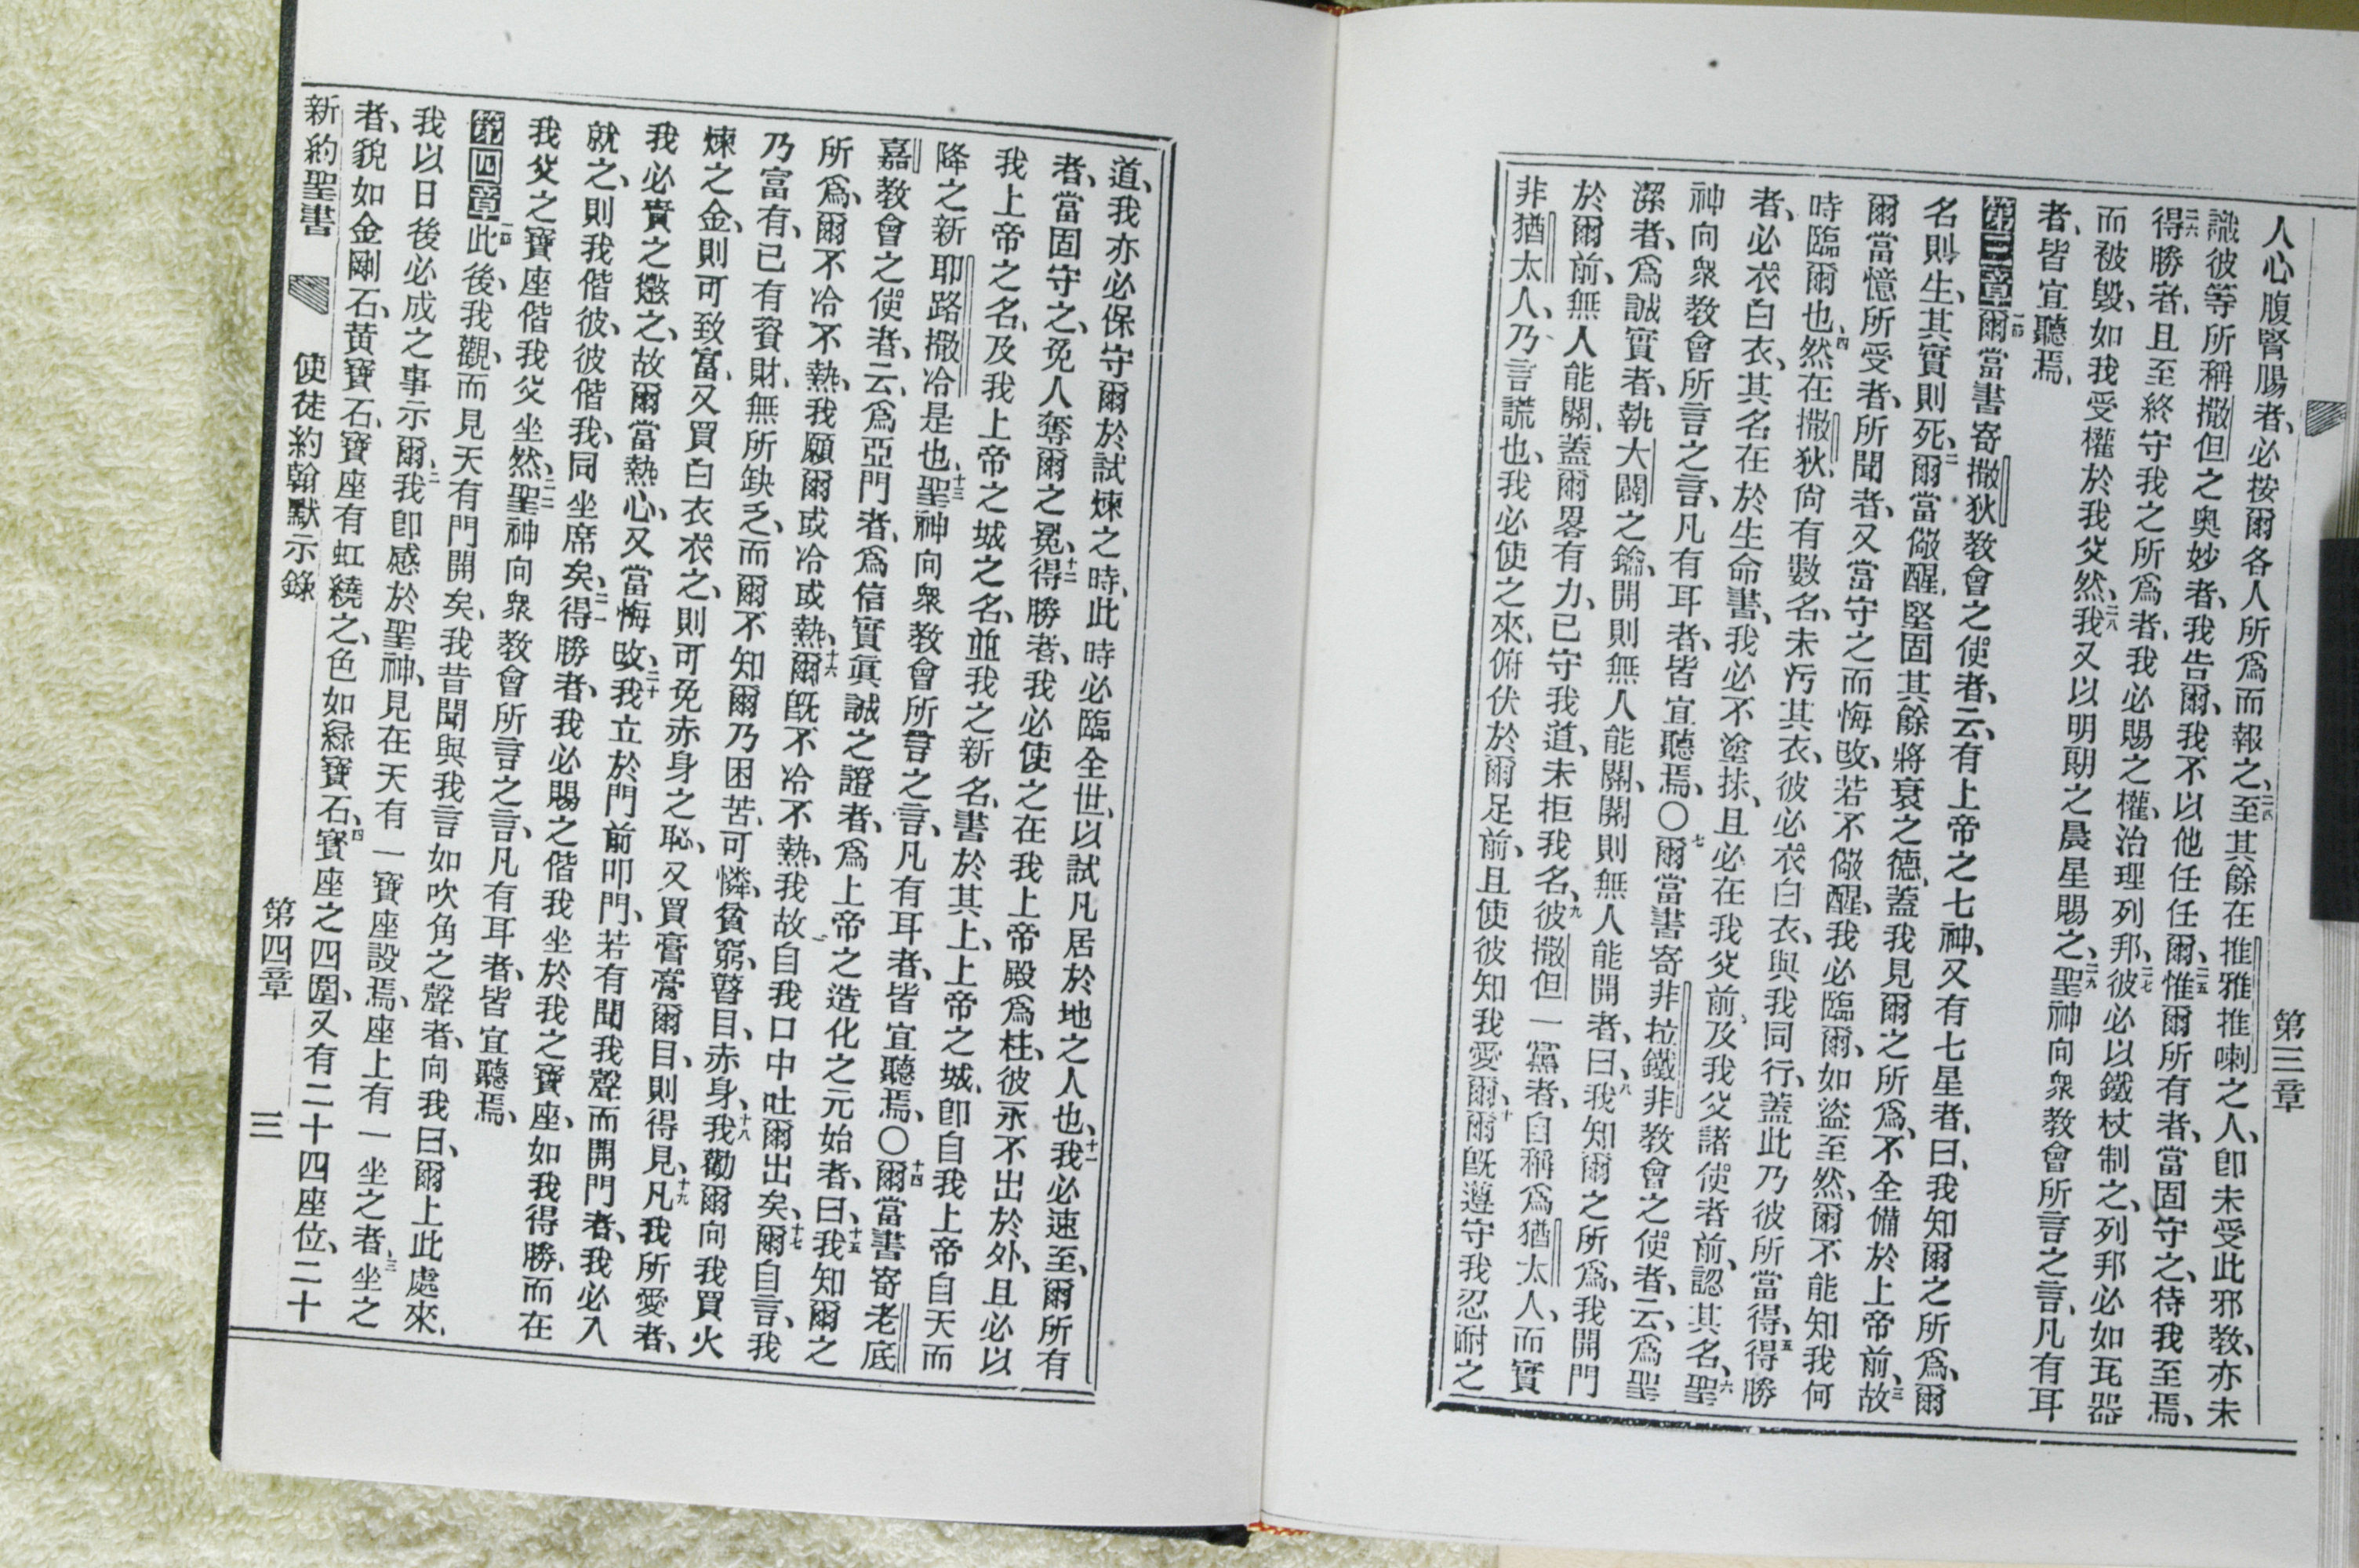 第三章
人心腹腎腸者、必按爾各人所爲而報之、二四至其餘在推雅推喇之人、卽未受此邪敎、亦未
識彼等所稱撒但之奧妙者、我告爾、我不以他任任爾、二五惟爾所有者、當固守之、待我至焉、
二六得勝者、且至終守我之所爲者、我必賜之權、治理列邦、二七彼必以鐵杖制之、列邦必如瓦器
而被毀、如我受權於我父然、二八我又以明朗之晨星賜之、二九聖神向衆敎會所言之言、凡有耳
者、皆宜聽焉、
第三章一節爾當書寄撒狄敎會之使者、云、有上帝之七神、又有七星者、曰、我知爾之所爲、爾
名則生、其實則死、二爾當儆醒、堅固其餘將衰之德、蓋我見爾之所爲、不全備於上帝前、三故
爾當憶所受者、所聞者、又當守之而悔改、若不儆醒、我必臨爾、如盜至然、爾不能知我何
時臨爾也、四然在撒狄、尙有數名、未污其衣、彼必衣白衣、與我同行、蓋此乃彼所當得、五得勝
者、必衣白衣、其名在於生命書、我必不塗抹、且必在我父前、及我父諸使者前、認其名、六聖
神向衆敎會所言之言、凡有耳者、皆宜聽焉、〇七爾當書寄非拉鐵非敎會之使者、云、爲聖
潔者、爲誠實者、執大闢之鑰、開則無人能關、關則無人能開者、曰、八我知爾之所爲、我開門
於爾前、無人能關、蓋爾畧有力、已守我道、未拒我名、九彼撒但一黨者、自稱爲猶太人、而實
非猶太人、乃言謊也、我必使之來、俯伏於爾足前、且使彼知我愛爾、十爾旣遵守我忍耐之
道、我亦必保守爾於試煉之時、此時必臨全世、以試凡居於地之人也、十一我必速至、爾所有
者、當固守之、免人奪爾之冕、十二得勝者、我必使之在我上帝殿爲柱、彼永不出於外、且必以
我上帝之名、及我上帝之城之名、並我之新名、書於其上、上帝之城、卽自我上帝自天而
降之新耶路撒冷是也、十三聖神向衆敎會所言之言、凡有耳者、皆宜聽焉、〇十四爾當書寄老底
嘉敎會之使者、云、爲亞門者、爲信實眞誠之證者、爲上帝之造化之元始者、曰、十五我知爾之
所爲、爾不冷不熱、我願爾或冷或熱、十六爾旣不冷不熱、我故自我口中吐爾出矣、十七爾自言、我
乃富有、已有資財、無所缺乏、而爾不知爾乃困苦、可憐、貧窮、瞽目、赤身、十八我勸爾向我買火
煉之金、則可致富、又買白衣衣之、則可免赤身之恥、又買膏膏爾目、則得見、十九凡我所愛者、
我必責之懲之、故爾當熱心、又當悔改、二十我立於門前叩門、若有聞我聲而開門者、我必入
就之、則我偕彼、彼偕我、同坐席矣、二一得勝者、我必賜之偕我坐於我之寶座、如我得勝、而在
我父之寶座偕我父坐然、二二聖神向衆敎會所言之言、凡有耳者、皆宜聽焉、
第四章一節此後、我觀、而見天有門開矣、我昔聞與我言如吹角之聲者、向我曰、爾上此處來、
我以日後必成之事示爾、二我卽感於聖神、見在天有一寶座設焉、座上有一坐之者、三坐之
者、貌如金剛石、黃寶石、寶座有虹繞之、色如綠寶石、四寶座之四圍、又有二十四座位、二十
新約聖書 使徒約翰默示錄 第四章 三